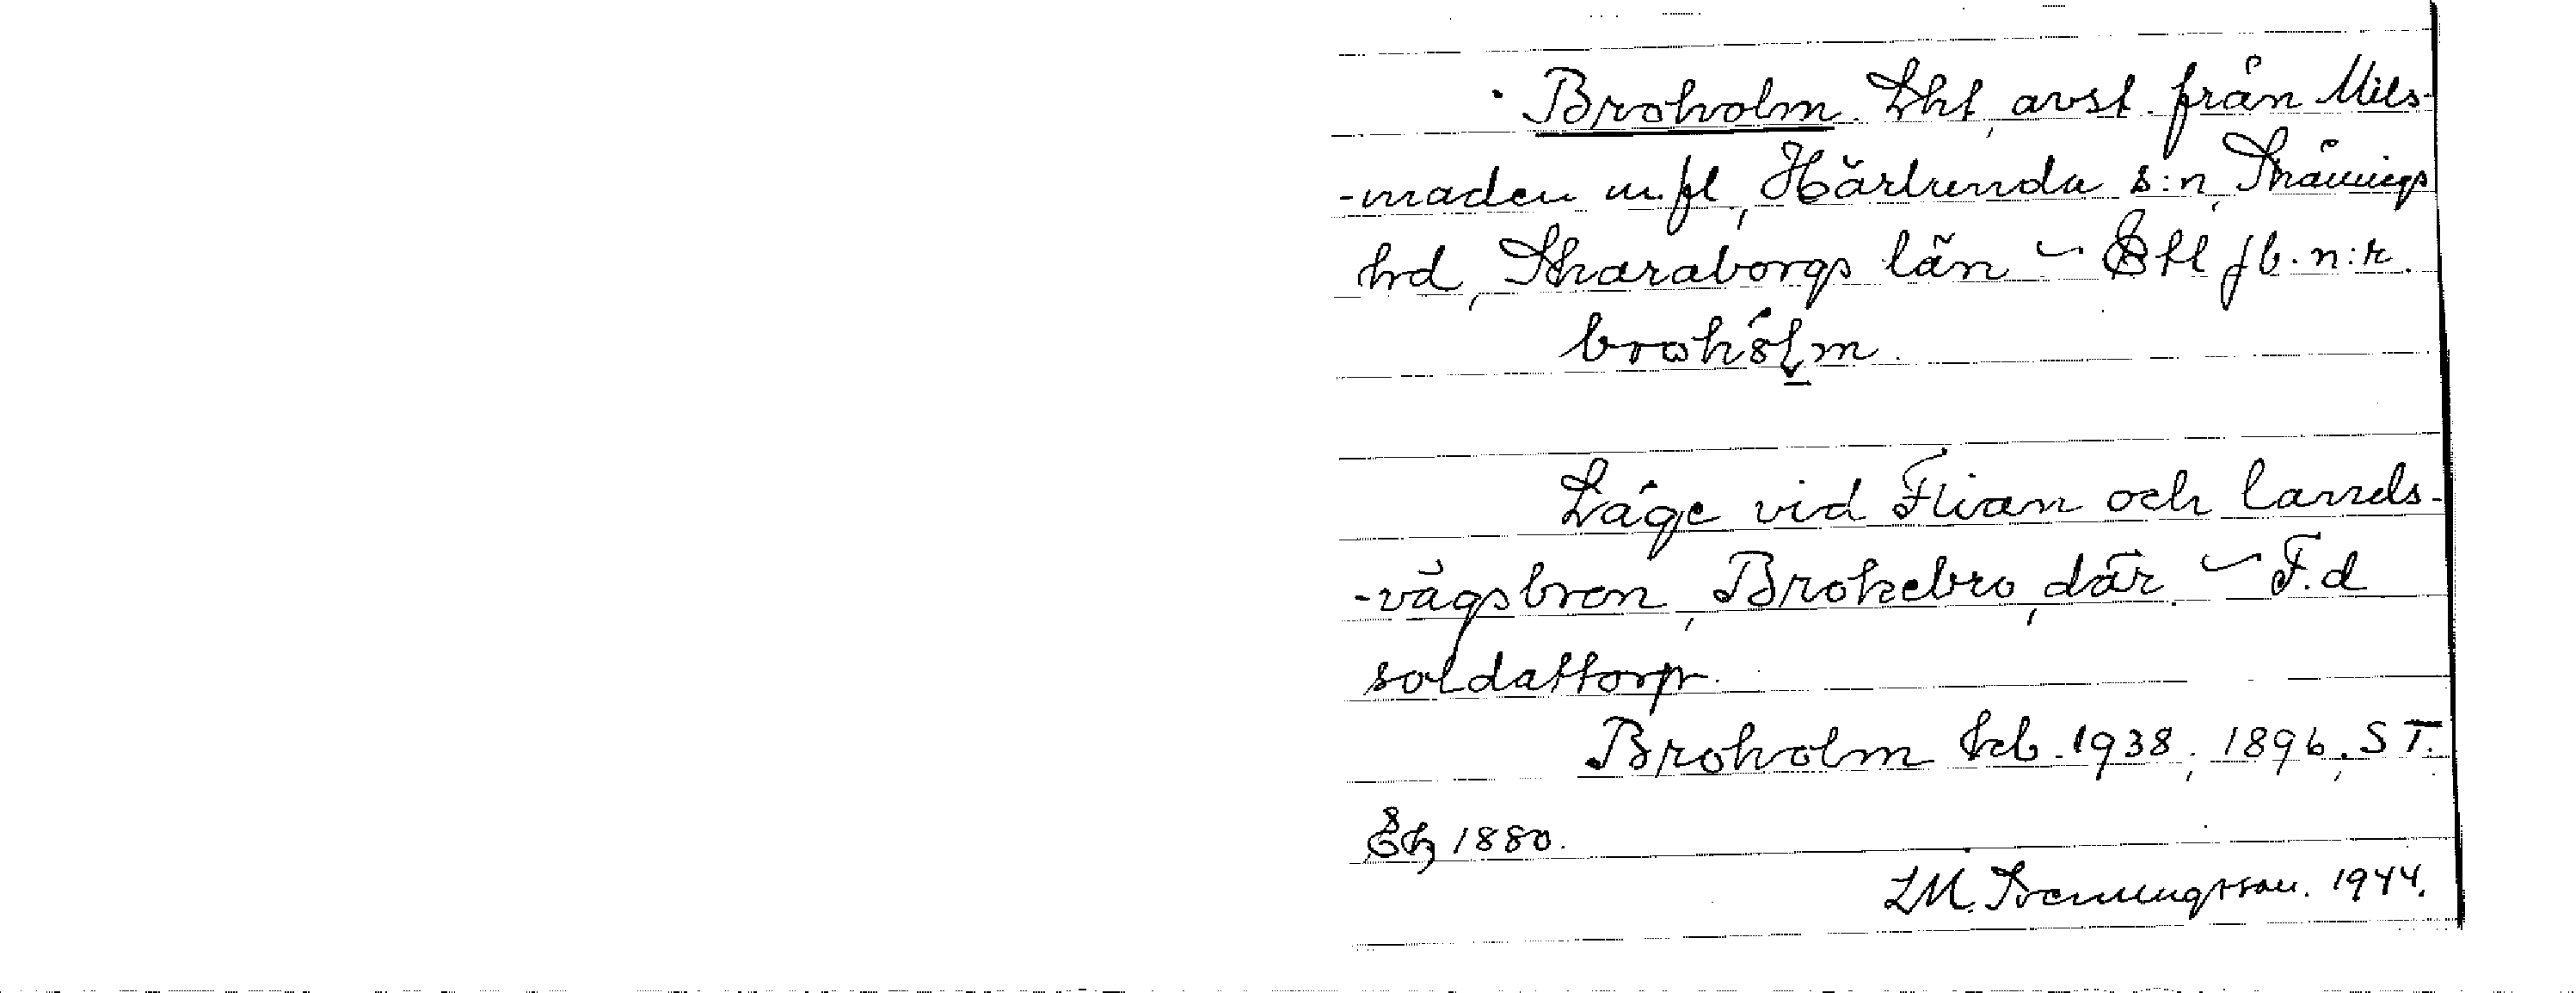 Broholm. Lht, avst. från Mils-
-maden m.fl, Härlunda s:n, Skånings
hrd, Skaraborgs län - Stl jb. n:r.
brohólm.
Läge vid Flian och lands-
-vägsbron, Brokebro, där. - F.d
soldattorp.
Broholm kb. 1938; 1896, ST.
Ek 1880.
L.M. Svenungsson. 1944.